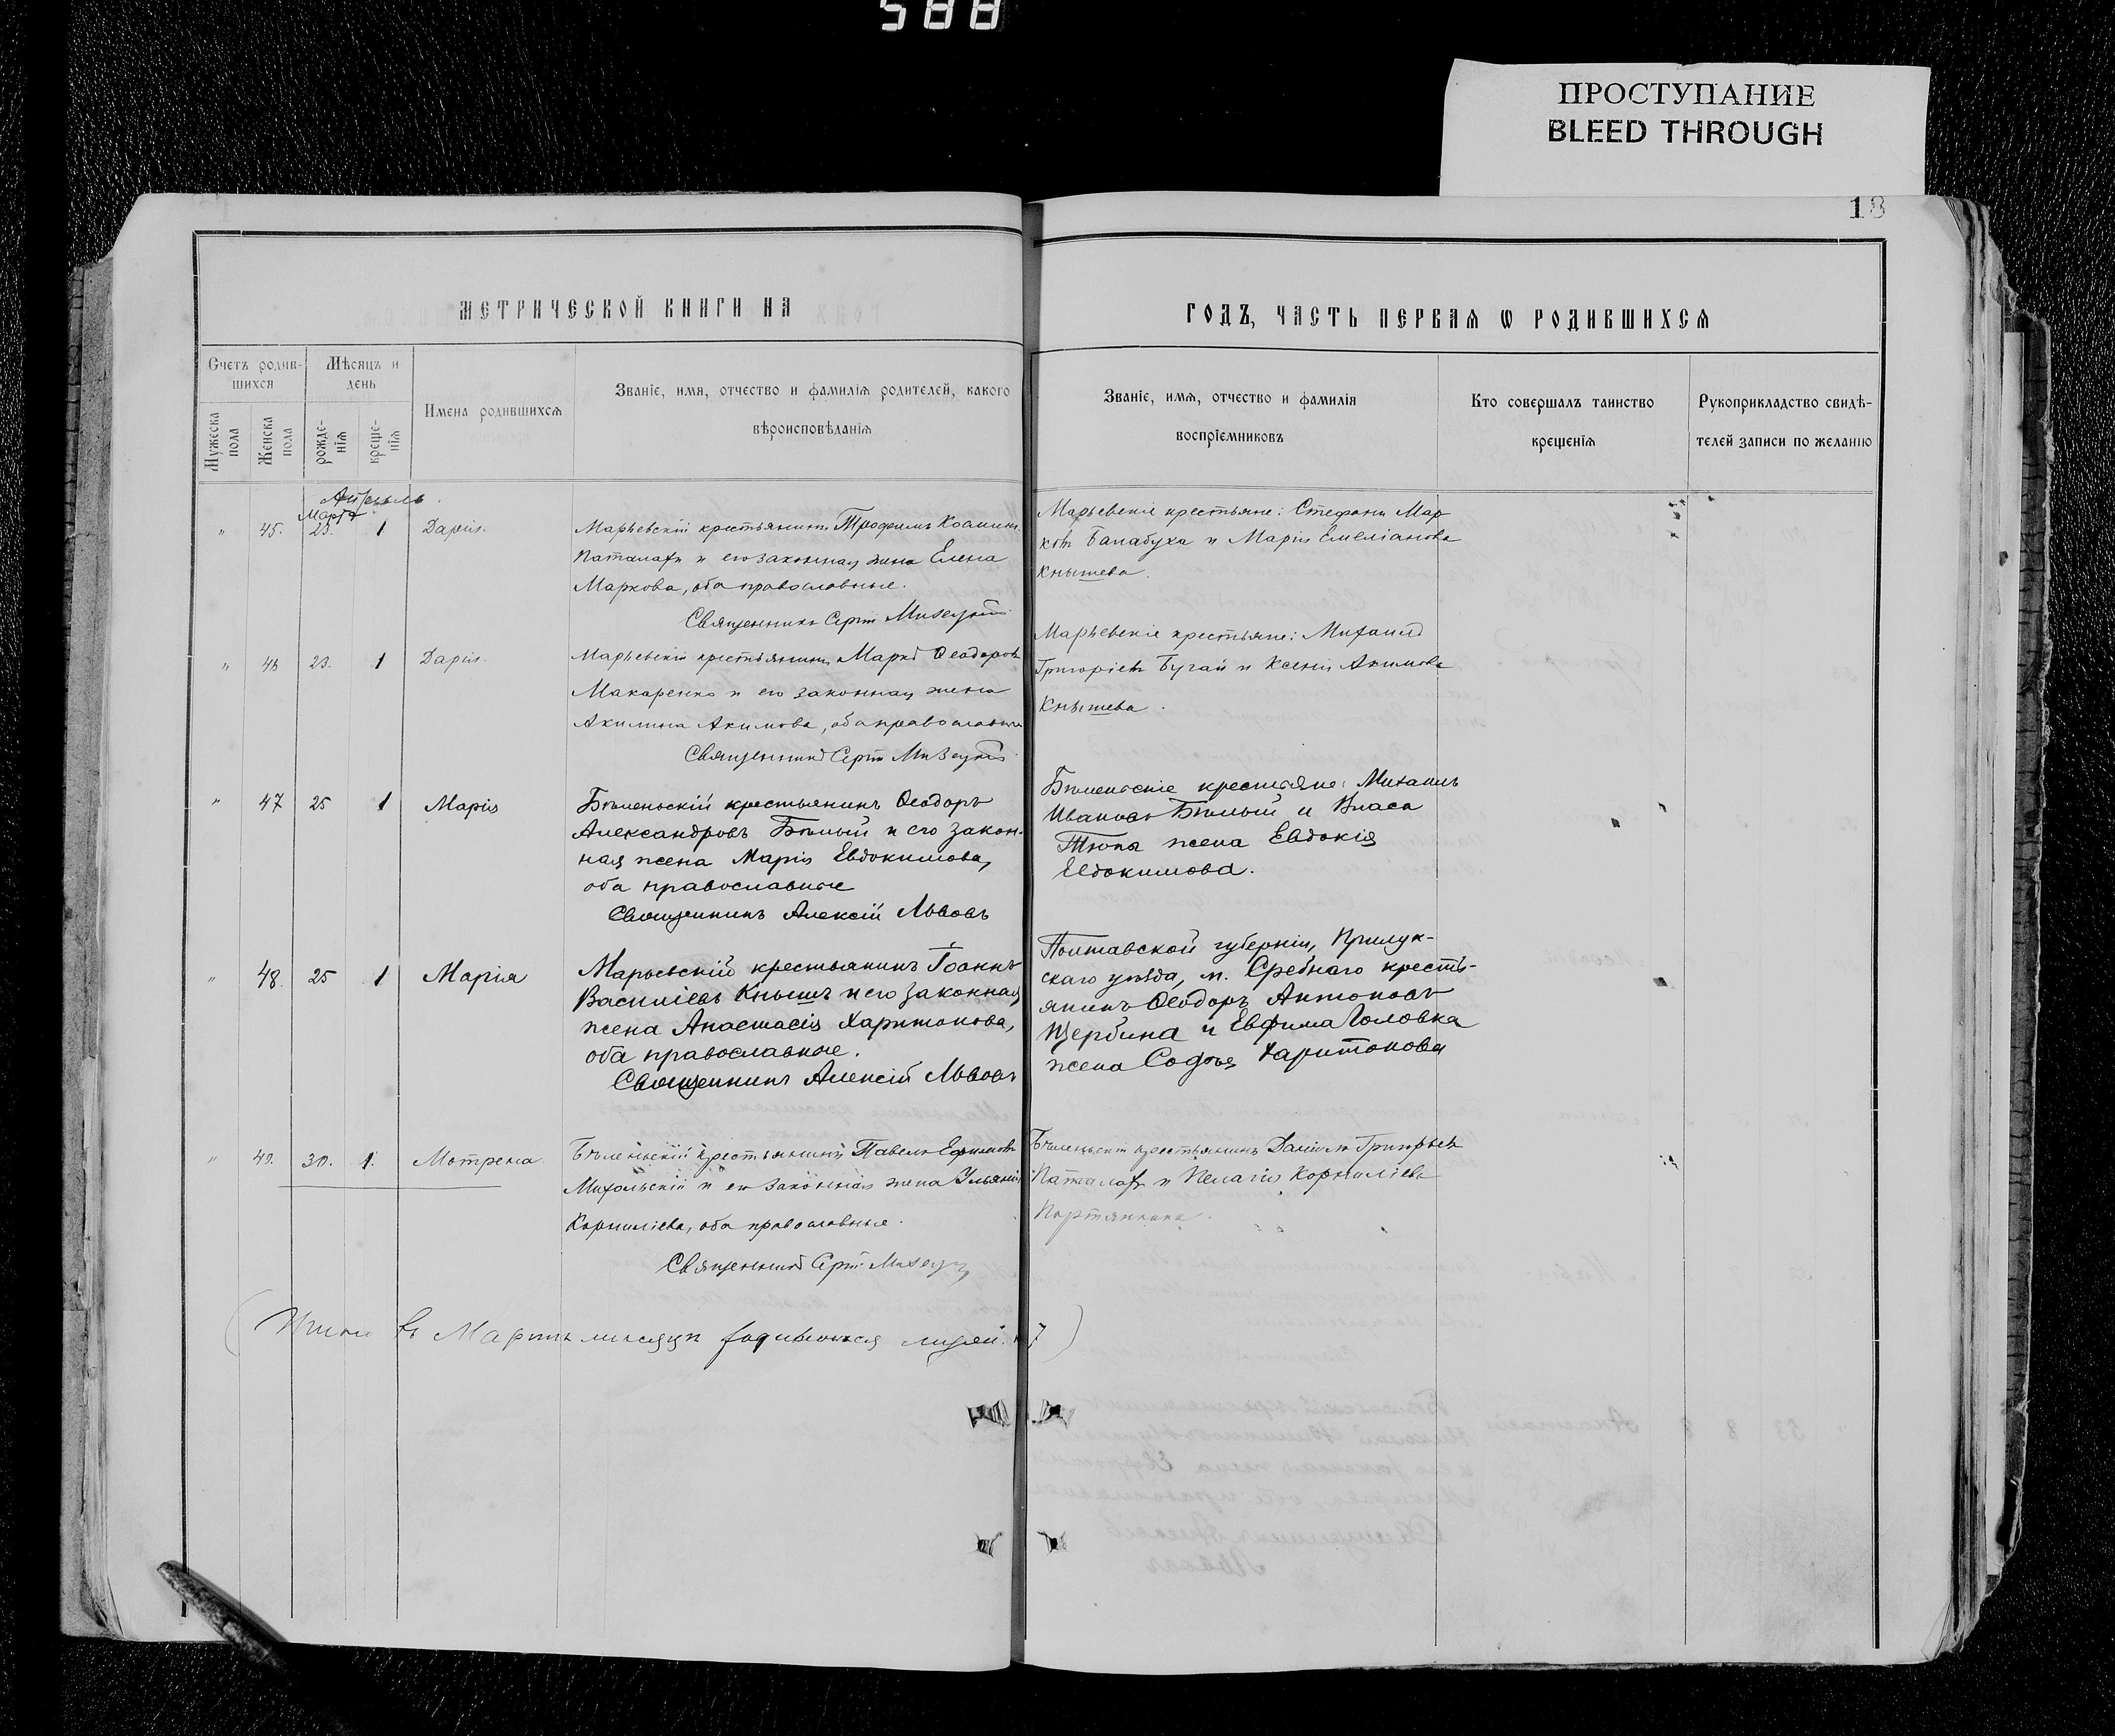 588
ПРОСТУПАНИЕ
BLEED THROUGH
18
МЕТРИЧЕСКОЙ КНИГИ НА
ГОДЪ, ЧАСТЬ ПЕРВАЯ Ѡ РОДИВШИХСЯ
Счетъ родив-
шихся
Мужеска
пола
Женска
пола
Мѣсяцъ и
день
рожде-
нія
креще-
нія
Имена родившихся
Званіе, имя, отчество и фамилія родителей, какого
вѣроисповѣданія
Званіе, имя, отчество и фамилія
воспріемниковъ
Кто совершалъ таинство
крещенія
Рукоприкладство свидѣ-
телей записи по желанію
Апрѣль.
Марта
" 45. 23. 1 Дарія.
Марьевскій крестьянинъ Трофимъ
Паталахъ и его законная жена Елена
Маркова, оба православные.
Священникъ
Марьевскіе крестьяне: Стефанъ Мар
ковъ Балабуха и Марія Емеліанова
Кнышева.
" 46 23. 1 Дарія.
Марьевскій крестьянинъ Маркъ Ѳеодоровъ
Макаренко и его законная жена
Акилина Акимова, оба православные
Священникъ
Марьевскіе крестьяне: Михаилъ
Григоріевъ Бугай и Ксенія Акимова
Кнышева.
" 47 25 1 Марія
Бѣленьскій крестьянинъ Ѳеодоръ
Александровъ Бѣлый и его закон-
ная жена Марія Евдокимова,
оба православные
Священникъ Алексій Львовъ
Бѣленьскіе крестьяне: Михаилъ
Ивановъ Бѣлый и Власа
Тюпы жена Евдокія
Евдокимова.
" 48. 25 1 Марія
Марьевскій крестьянинъ Іоаннъ
Василіевъ Кнышъ и его законная
жена Анастасія Харитонова,
оба православные.
Священникъ Алексій Львовъ
Полтавской губерніи, Прилук-
скаго уѣзда, м. Сребнаго кресть-
янинъ Ѳеодоръ Антоновъ
Щербина и Евфима Головка
жена Софья Харитонова
" 49. 30. 1. Мотрена.
Бѣленьскій крестьянинъ Павелъ Ефимовъ
и его законная жена Ульянія
Корниліева, оба православные.
Священникъ
Бѣленьскій крестьянинъ Даніилъ Григорьевъ
Паталахъ и Пелагія Корниліева
Портянкина.
(Итого въ Мартѣ мѣсяцѣ родившихся 7)